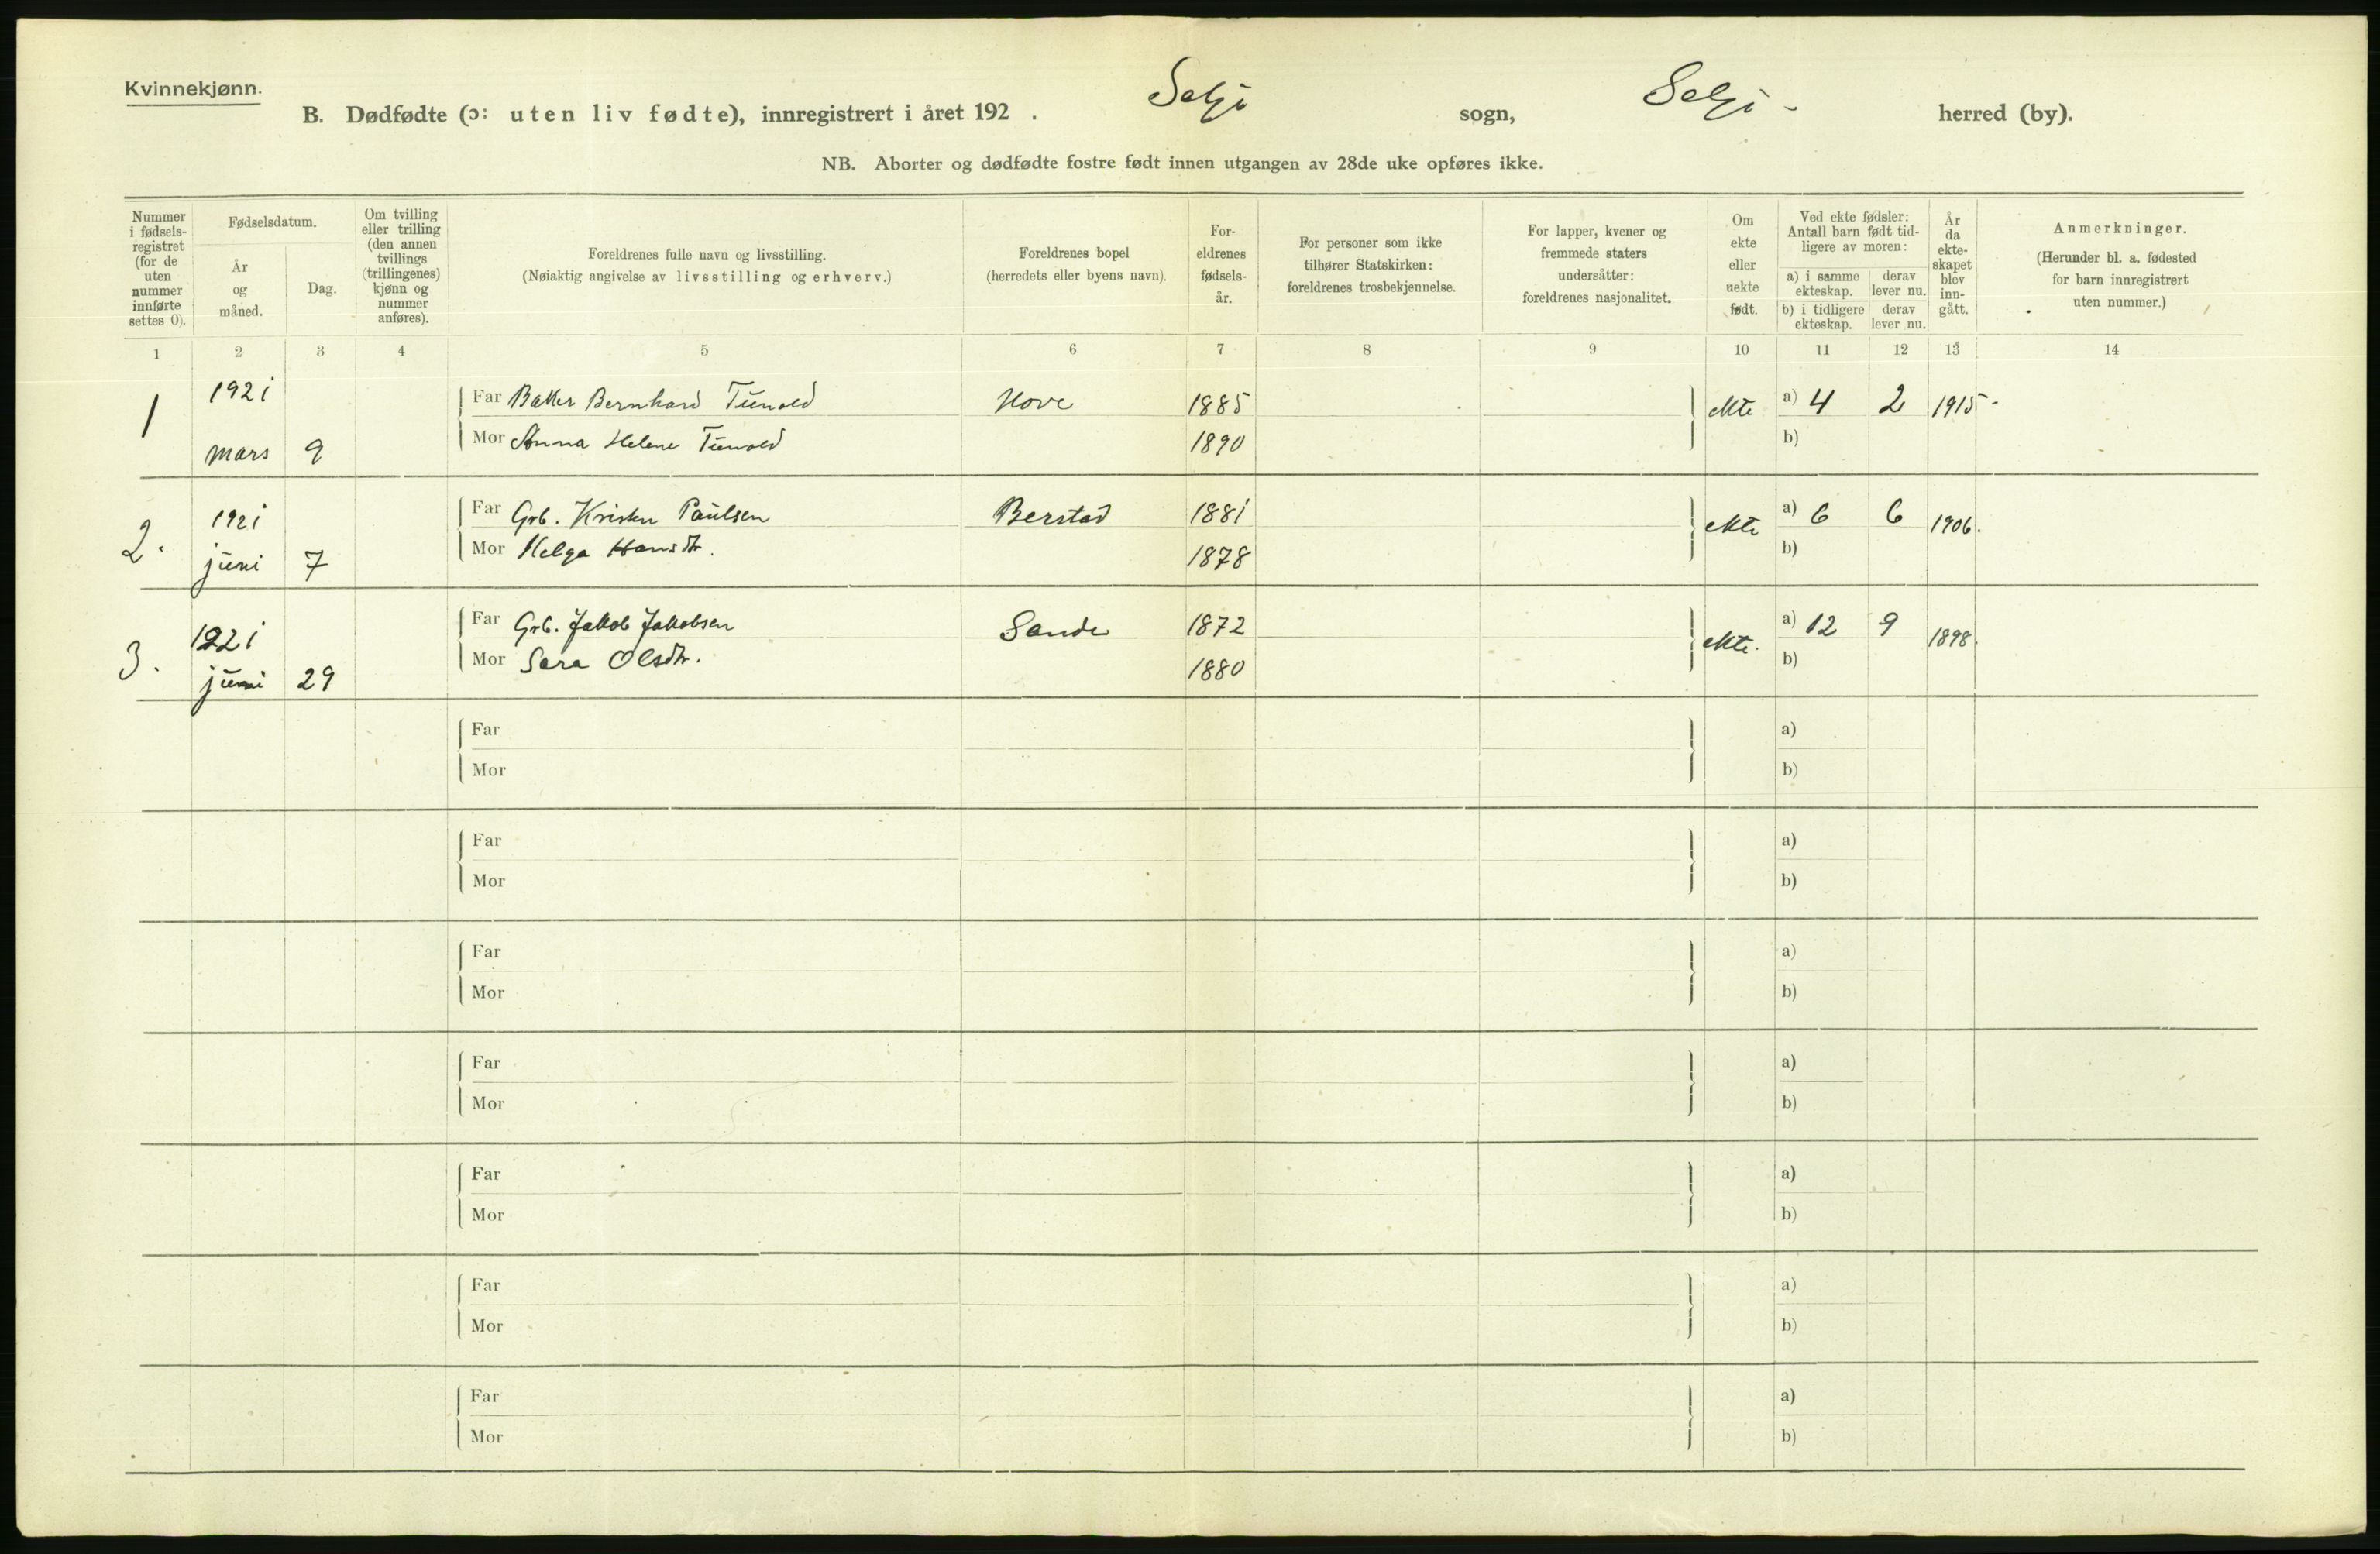 Kvinnekjønn.
B. Dødfødte (ɔ: uten liv fødte), innregistrert i året 192 . Selje sogn, Selje - herred (by).
NB. Aborter og dødfødte fostre født innen utgangen av 28de uke opføres ikke.
Nummer
i fødsels-
registret
(for de
uten
nummer
innførte
settes 0).
Fødselsdatum.
År
og
måned.
Dag.
Om tvilling
eller trilling
(den annen
tvillings
(trillingenes)
kjønn og
nummer
anføres).
Foreldrenes fulle navn og livsstilling.
(Nøiaktig angivelse av livsstilling og erhverv.)
Foreldrenes bopel
(herredets eller byens navn).
For-
eldrenes
fødsels-
år.
For personer som ikke
tilhører Statskirken:
foreldrenes trosbekjennelse.
For lapper, kvener og
fremmede staters
undersåtter:
foreldrenes nasjonalitet.
Om
ekte
eller
uekte
født.
Ved ekte fødsler:
Antall barn født tid-
ligere av moren:
a) i samme
ekteskap.
derav
lever nu.
b) i tidligere
ekteskap.
derav
lever nu.
År
da
ekte-
skapet
blev
inn-
gått.
Anmerkninger.
(Herunder bl. a. fødested
for barn innregistrert
uten nummer.)
1 2 3 4 5 6 7 8 9 10 11 12 13 14
1 1921 Far Baker Bernhard Tunold Hove 1885 ekte a) 4 2 1915-
mars 9 Mor Anna Helene Tunold 1890 b)
2. 1921 Far Grb. Kristen Paulsen Berstad 1881 ekte a) 6 6 1906.
juni 7 Mor Helga Hansdtr. 1878 b)
3. 1921 Far Grb. Jakob Jakobsen Sande 1872 ekte. a) 12 9 1898.
juni 29 Mor Sara Olsdtr. 1880 b)
Far a)
Mor b)
Far a)
Mor b)
Far a)
Mor b)
Far a)
Mor b)
Far a)
Mor b)
Far a)
Mor b)
Far a)
Mor b)